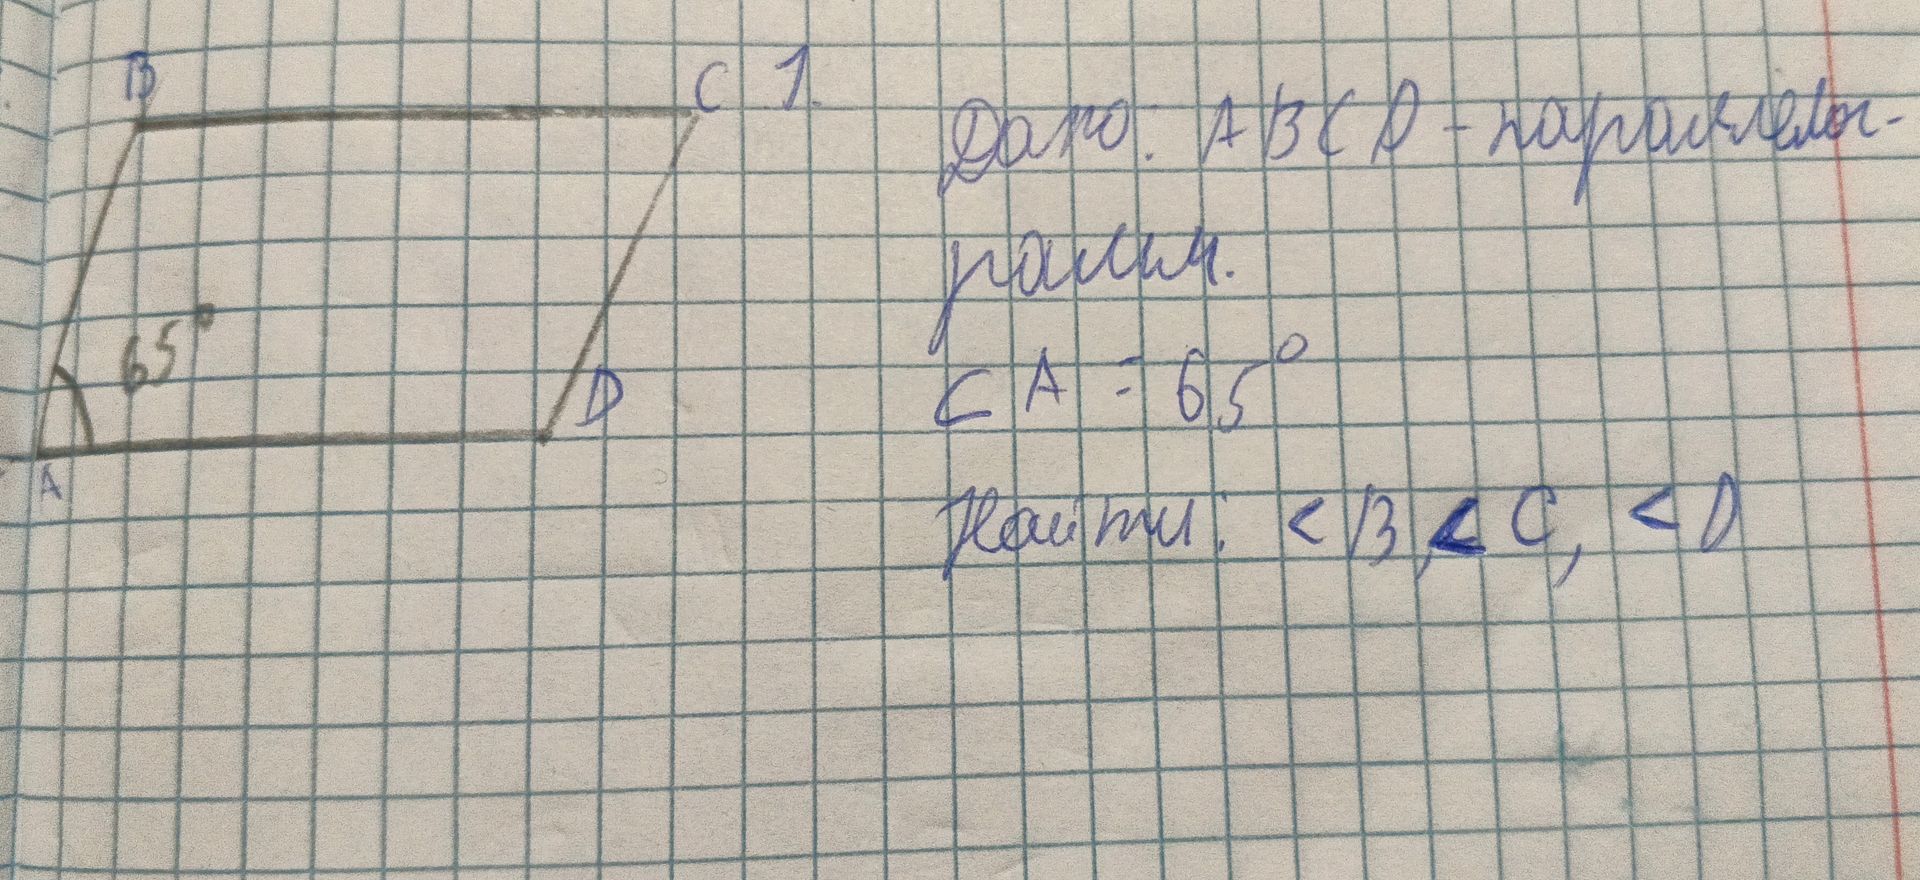 B
C
1.
65°
D
A
Дано: ABCD - параллелог-
рамм.
<A = 65°
Найти: <B, <C, <D